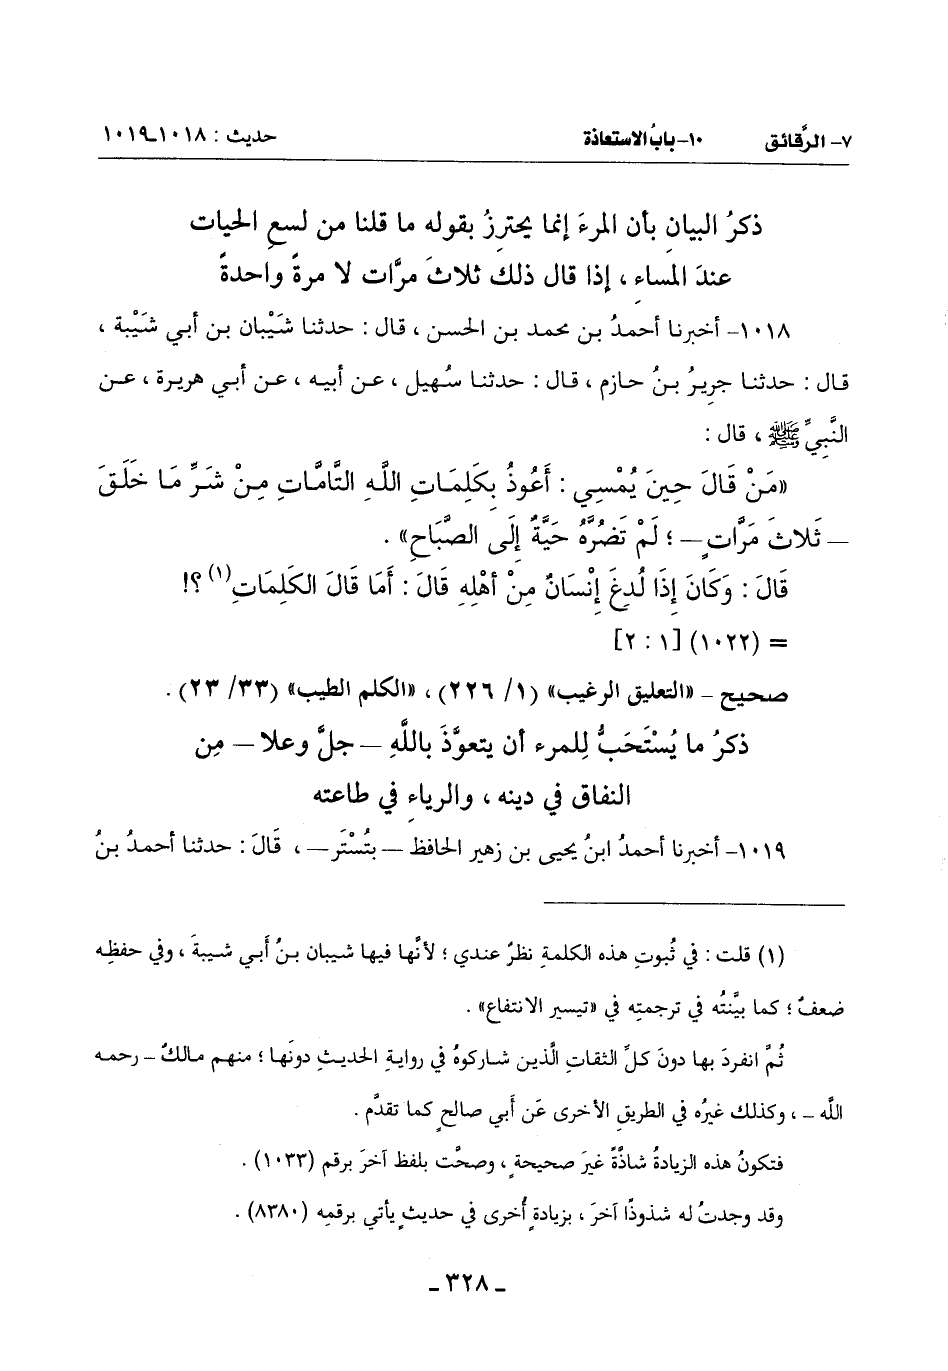 ٧- الرَّقائق ١٠-بابُ الاستعاذة حديث : ١٠١٨ـ١٠١٩
ذكرُ البيانِ بأن المرءَ إنما يحترزُ بقوله ما قلنا من لسعِ الحيات
عندَ المساءِ ، إذا قال ذلك ثلاثَ مرَّات لا مرةً واحدةً
١٠١٨- أخبرنا أحمدُ بن محمد بن الحسن ، قال : حدثنا شَيْبان بن أبي شَيْبة ،
قال : حدثنا جريرُ بنُ حازمٍ ، قال : حدثنا سُهيل ، عن أبيه ، عن أبي هريرة ، عن
النَّبيِّ ﷺ ، قال :
«مَنْ قَالَ حِينَ يُمْسِي : أَعُوذُ بِكَلِمَاتِ اللَّهِ التَّامَّاتِ مِنْ شَرِّ مَا خَلَقَ
– ثَلاثَ مَرَّاتٍ – ؛ لَمْ تَضُرَّهُ حَيَّةٌ إِلَى الصَّبَاحِ» .
قَالَ : وَكَانَ إِذَا لُدِغَ إِنْسَانٌ مِنْ أَهْلِهِ قَالَ : أَمَا قَالَ الكَلِمَاتِ(١) ؟!
= (١٠٢٢) [١ : ٢]
صحيح – «التعليق الرغيب» (١/ ٢٢٦) ، «الكلم الطيب» (٣٣/ ٢٣) .
ذكرُ ما يُسْتَحَبُّ لِلمرء أن يتعوَّذَ باللَّهِ – جلَّ وعلا – مِن
النفاق في دينه ، والرياءِ في طاعته
١٠١٩- أخبرنا أحمدُ ابنُ يحيى بن زهير الحافظ – بتُسْتَر – ، قَالَ : حدثنا أحمدُ بنُ
(١) قلت : في ثُبوتِ هذه الكلمةِ نظرٌ عندي ؛ لأنَّها فيها شيبان بنُ أَبي شيبةَ ، وفي حفظِه
ضعفٌ ؛ كما بيَّنتُه في ترجمتِه في «تيسير الانتفاع» .
ثُمَّ انفردَ بها دونَ كلِّ الثقاتِ الَّذين شاركوهُ في روايةِ الحديثِ دونَها ؛ منهم مالكٌ – رحمه
اللَّه – ، وكذلك غيرُه في الطريقِ الأخرى عَن أَبي صالحٍ كما تقدَّم .
فتكونُ هذه الزيادةُ شاذَّةً غيرَ صحيحةٍ ، وصحَّت بلفظ آخرَ برقم (١٠٣٣) .
وقد وجدتُ له شذوذًا آخرَ ، بزيادةٍ أُخرى في حديثٍ يأتي برقمِه (٨٣٨٠) .
- ٣٢٨ -